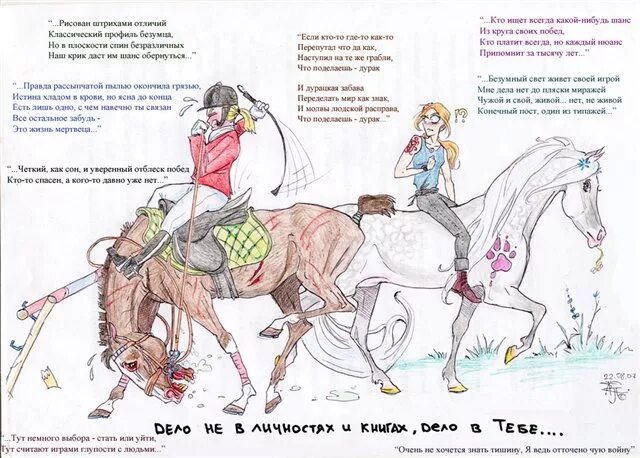 “...Рисован штрихами отличий
Классический профиль безумца,
Но в плоскости спин безразличных
Наш крик даст им шанс обернуться...”
“...Правда рассыпчатой пылью окончила грязью,
Истина хладом в крови, но ясна до конца
Есть лишь одно, с чем навечно ты связан
Все остальное забудь -
Это жизнь мертвеца...”
“...Четкий, как сон, и уверенный отблеск побед
Кто-то спасен, а кого-то давно уже нет...”
“Если кто-то где-то как-то
Перепутал что да как,
Наступил на те же грабли,
Что поделаешь - дурак
И дурацкая забава
Переделать мир как знак,
И молвы людской расправа,
Что поделаешь - дурак...”
“...Кто ищет всегда какой-нибудь шанс
Из круга своих побед,
Кто платит всегда, но каждый нюанс
Припомнит за тысячу лет...”
“...Безумный свет живет своей игрой
Мне дела нет до пляски миражей
Чужой и свой, живой... нет, не живой
Конечный пост, один из типажей...”
!?
22.08.07
Дело не в личностях и книгах, дело в Тебе....
“...Тут немного выбора - стать или уйти,
Тут считают играми глупости с людьми...”
“Очень не хочется знать тишину, Я ведь отточено чую войну”